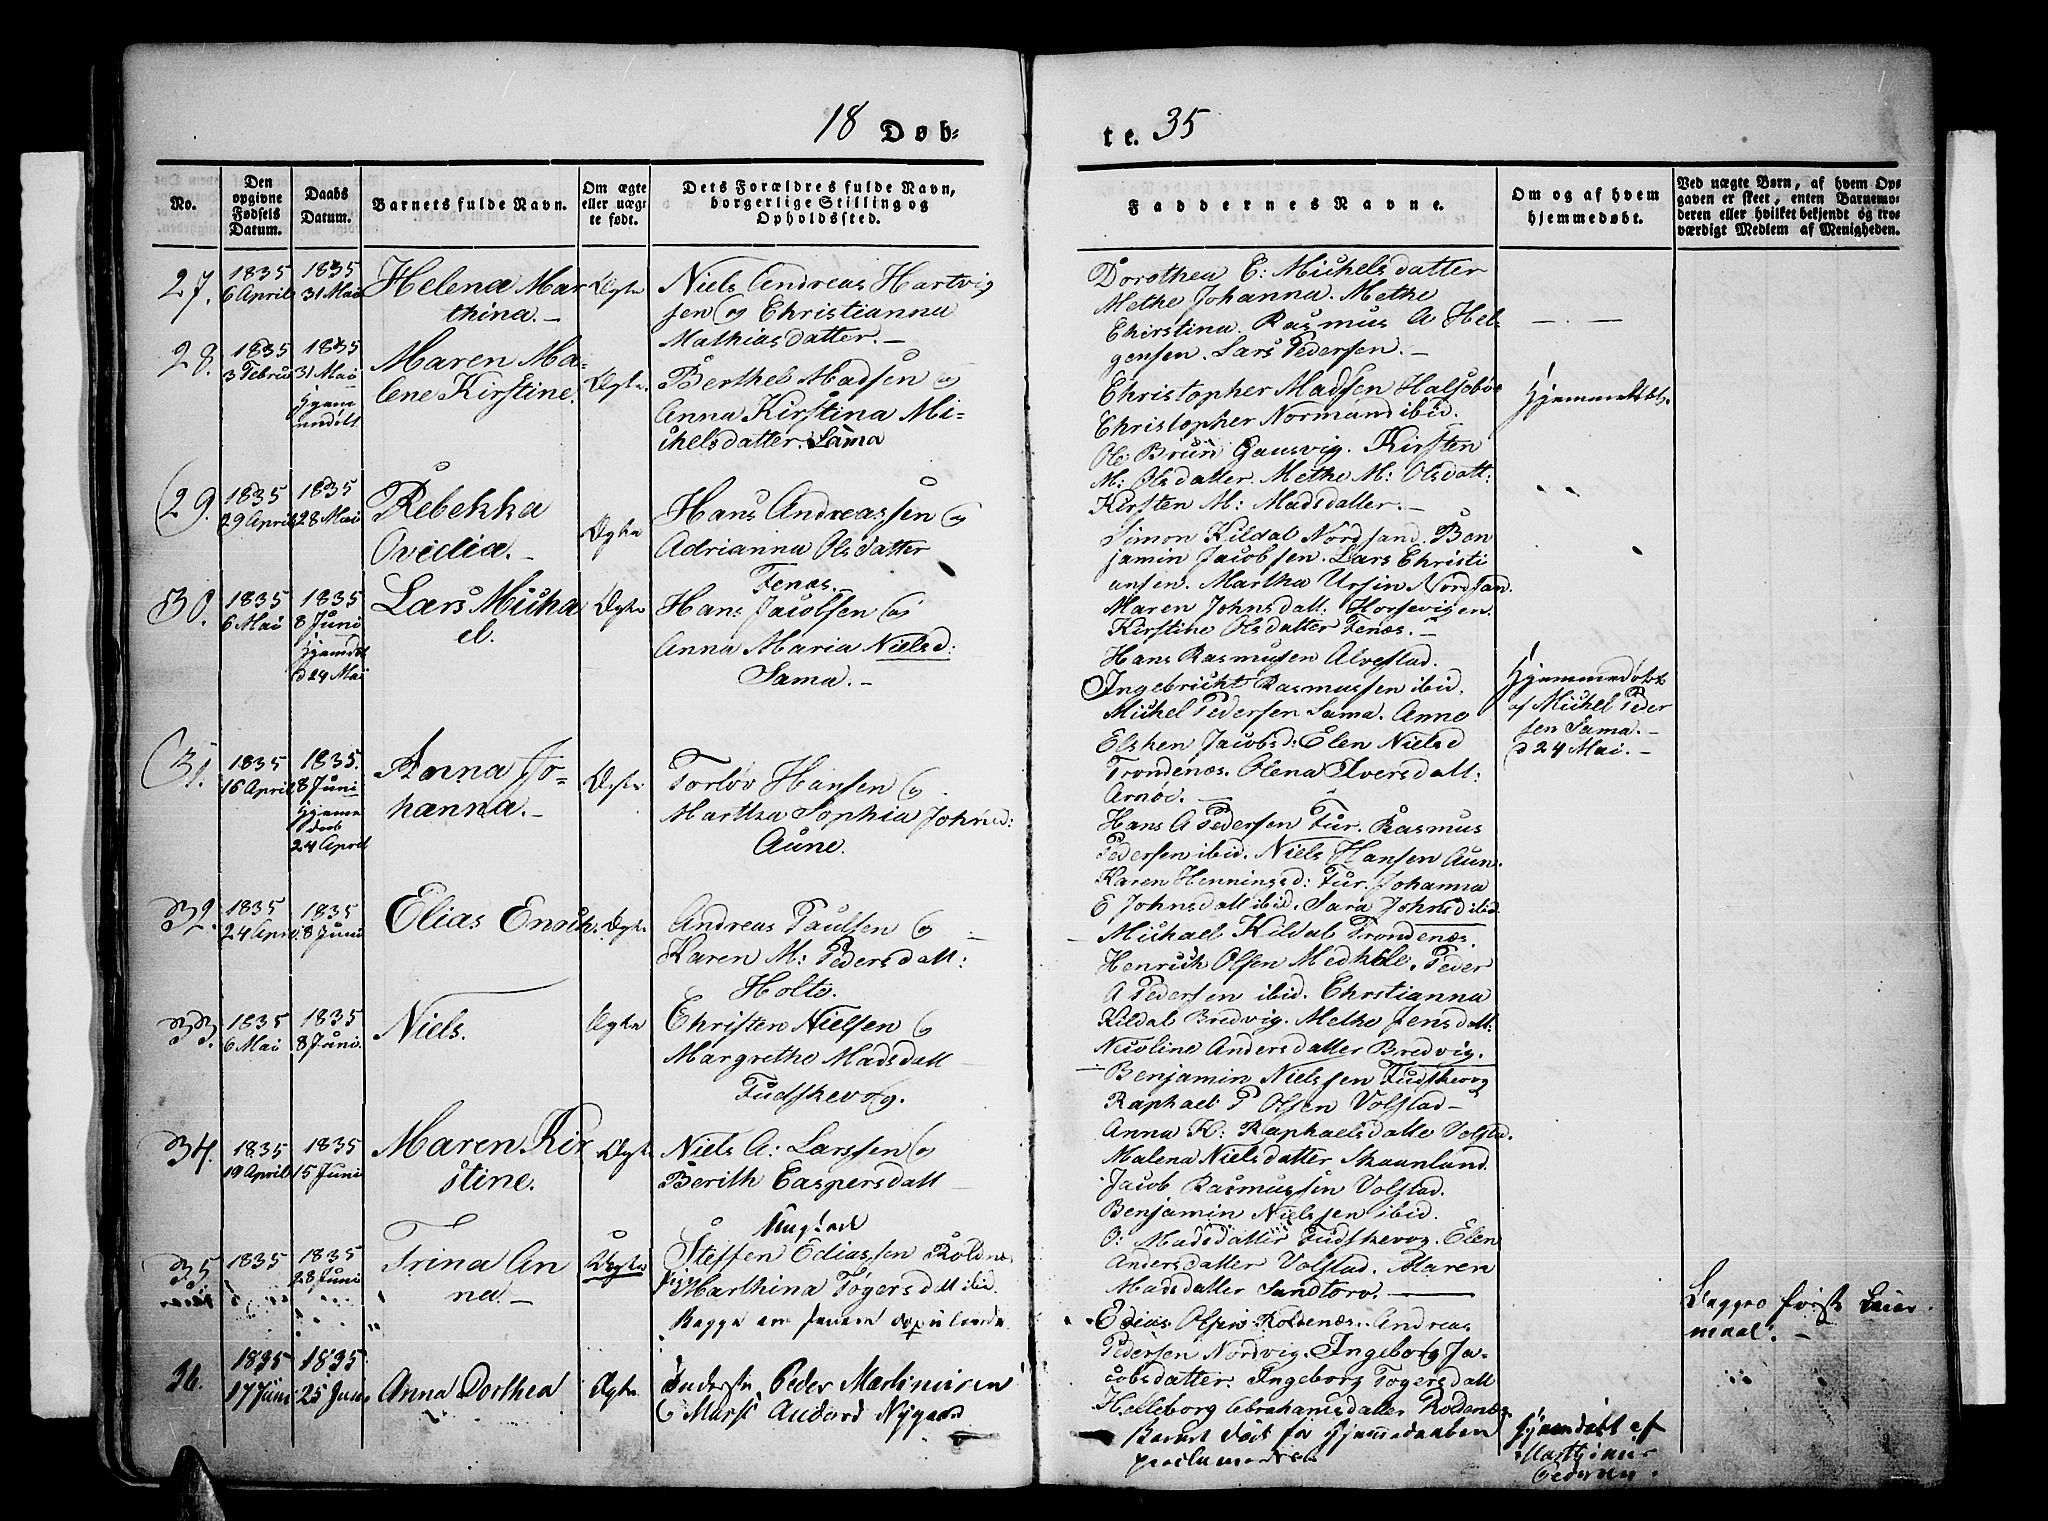 18 Døb-
te. 35
No.
Den opgivne Fødsels Datum.
Daabs Datum.
Barnets fulde Navn.
Om ægte eller uægte født.
Dets Forældres fulde Navn, borgerlige Stilling og Opholdssted.
Faddernes Navne.
Om og af hvem hjemmedøbt.
Ved uægte Børn, af hvem Opgaven er skeet, enten Barnemoderen eller hvilket bekjendt og troværdigt Medlem af Menigheden.
27.
1835
6 April
1835
31 Mai
Helena Mar
thina. –
Ægte
Niels Andreas Hartvig
sen og Christianna
Mathiasdatter. –
Dorothea C: Michelsdatter
Methe Johanna. Methe
Chirstina. Rasmus A Hel-
gensen. Lars Pedersen. –
28.
1835
3 Febru
1835
31 Mai
Hjem
mdøbt
Maren Ma-
lene Kirstine.
Ægte.
Berthel Madsen og
Anna Kirstina Mi-
chelsdatter. Sama
Christopher Madsen Halsebøe
Christopher Normand ibid.
Ole Bruun Gansvig. Kirsten
M: Olsdatter. Methe M: Olsdatt:
Kirsten M: Madsdatter. –
Hjemmedøbt.
29.
1835
29 April
1835
28 Mai
Rebekka
Ovidia. –
Ægte
Hans Andreassen og
Adrianna Olsdatter
Fenæs.
Simon Kildal Nordsand. Ben
jamin Jacobsen. Lars Christi
ansen. Martha Ursin Nordsand
Maren Johnsdatt: Horsevigen.
Kirstine Olsdatter Fenæs. –
30.
1835
6 Mai
1835
8 Juni
Hjemdøbt
d 24 Mai
Lars Micha
el.
Ægte
Hans Jacobsen og
Anna Maria Nielsd:
Sama. –
Hans Rasmusen Alvestad.
Ingebricht Rasmussen ibid.
Michel Pedersen Sama. Anne
Elsken Jacobsd: Elen Nielsd
Trondenæs. Olena Iversdatt:
Arnøe. –
Hjemmedøbt
af Michel Peder
sen Sama. –
d 24 Mai. –
31.
1835
16 April
1835.
8 Juni
Hjemme
døbt
24 April
Anna Jo-
hanna. –
Ægte
Torløv Hansen og
Martha Sophia Johnsd:
Aune.
Hans A Pedersen Fur. Rasmus
Pedersen ibid. Niels Hansen Aun.
Karen Henningsd: Fur. Johanna
E Johnsdatt ibid. Sara Johnsd ibid.
32.
1835
24 Apr.
1835
8 Juni
Elias Enoch.
Ægte
Andreas Paulsen og
Karen M: Pedersdatt:
Holte.
Michael Kildal Trondenæs.
Henrich Olsen Medkile. Peder
A Pedersen ibid. Chrstianna
Kildal Bredvig. Methe Jensdatt:
Nicoline Andersdatter Bredvig.
33.
1835
6 Mai
1835
8 Juni.
Niels.
Ægte
Christen Nielsen og
Margrethe Madsdatt
Fudskevog.
Benjamin Nielssen Fudskevog
Raphael P Olsen Volstad –
Anna K: Raphaelsdatte Volstad.
Malena Nielsdatter Skaanland
34.
1835
19 April
1835
15 Juni
Maren Kir
stine.
Ægte
Niels A: Larssen og
Berith Caspersdatt
Jacob Rasmussen Volstad.
Benjamin Nielssen ibid.
O: Madsdatter Fudskevog. Elen
Andersdatter Volstad. Maren
Madsdatter Sandtorv. –
35
1835
1835
28 Juni
Trina An
na. –
Steffen Ediassen Roldnæs
Marthina Tøgersdatt ibid.
Edias Olsen Roldenæs. Andreas
Pedersen Nordvig. Ingeborg Ja-
cobsdatter. Ingeborg Togersdatt
Helleborg Abrahamsdatter Roldenæs.
Begges første Leier
maal. –
36.
1835
17 Juni
1835
25 Juni
Anna Dorthea
Ægte
Peder Martinusen